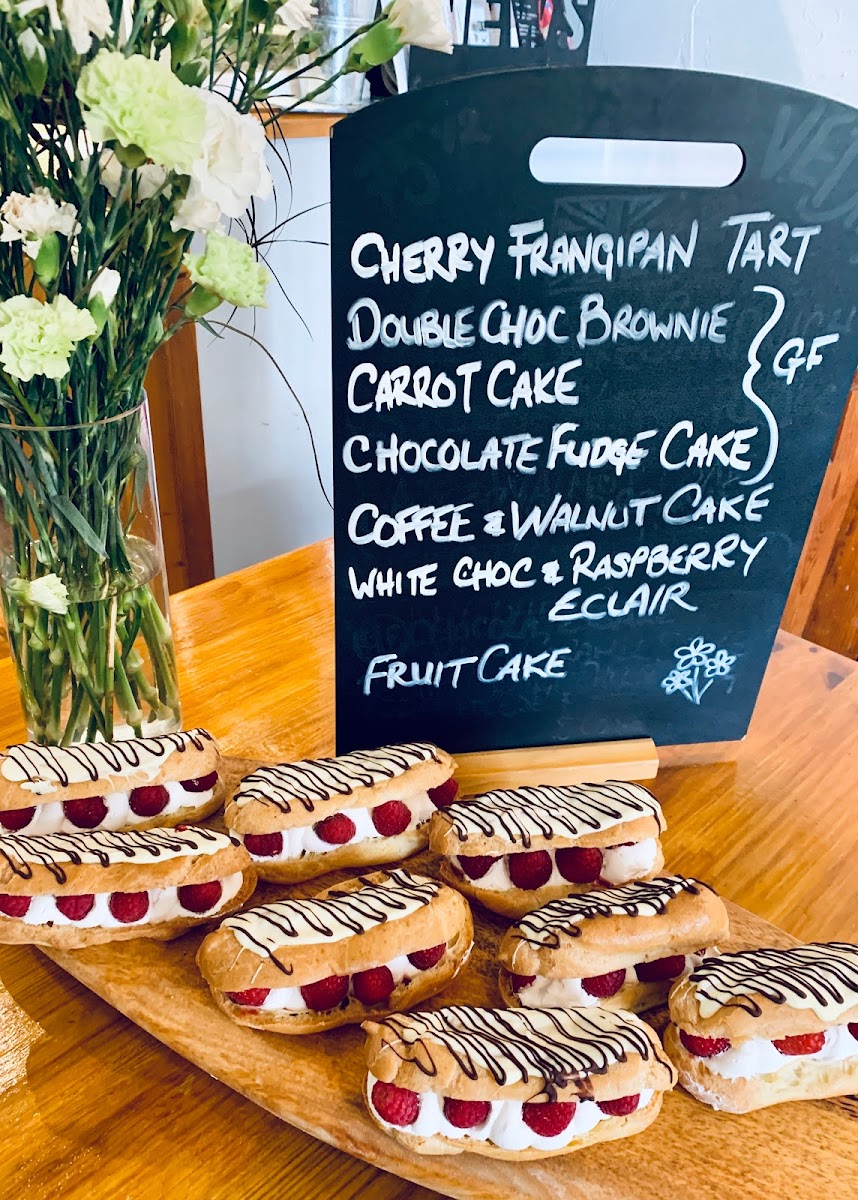 CHERRY FRANGIPAN TART
DOUBLE CHOC BROWNIE
CARROT CAKE
CHOCOLATE FUDGE CAKE
GF
COFFEE & WALNUT CAKE
WHITE CHOC & RASPBERRY
ECLAIR
FRUIT CAKE